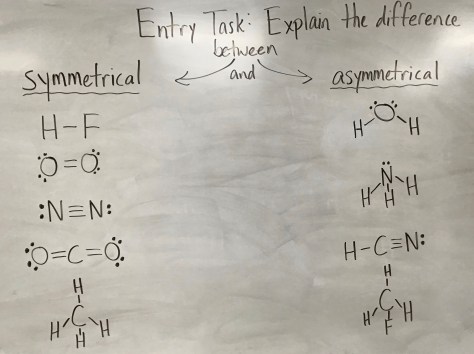 Entry Task: Explain the difference
between
symmetrical and asymmetrical
H-F
O=O
:N≡N:
O=C=O
H
H C H
H
H O H
H N H
H
H-C≡N:
H
H C H
F